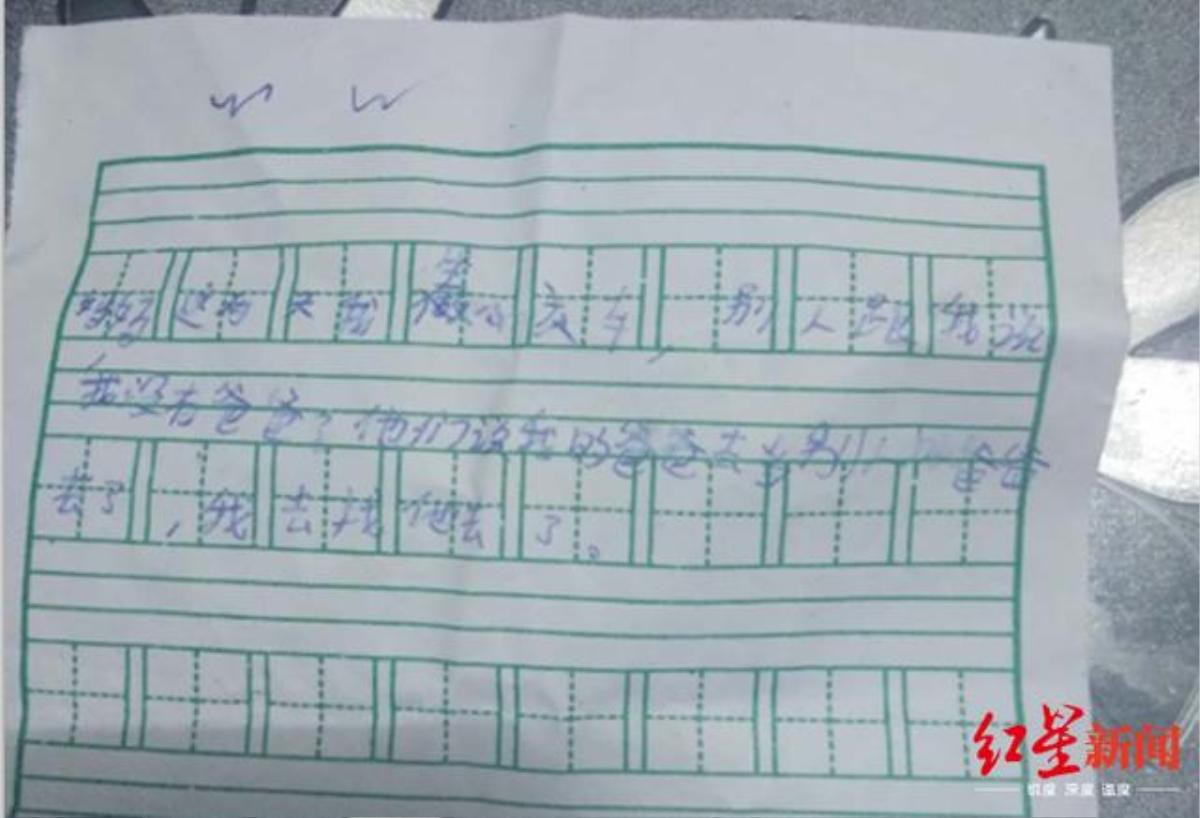 妈妈这两天我坐公交车，别人跟我说
，我没有爸爸，他们说我的爸爸去当别人的爸爸
去了，我去找他去了。
红星新闻
锐度 深度 温度